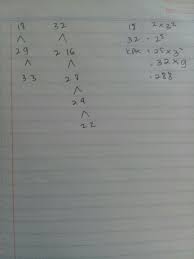 18 32
2 9 2 16
3 3 2 8
2 4
2 2
18 2 x 3²
32 = 2⁵
KPK = 2⁵ x 3²
= 32 x 9
= 288